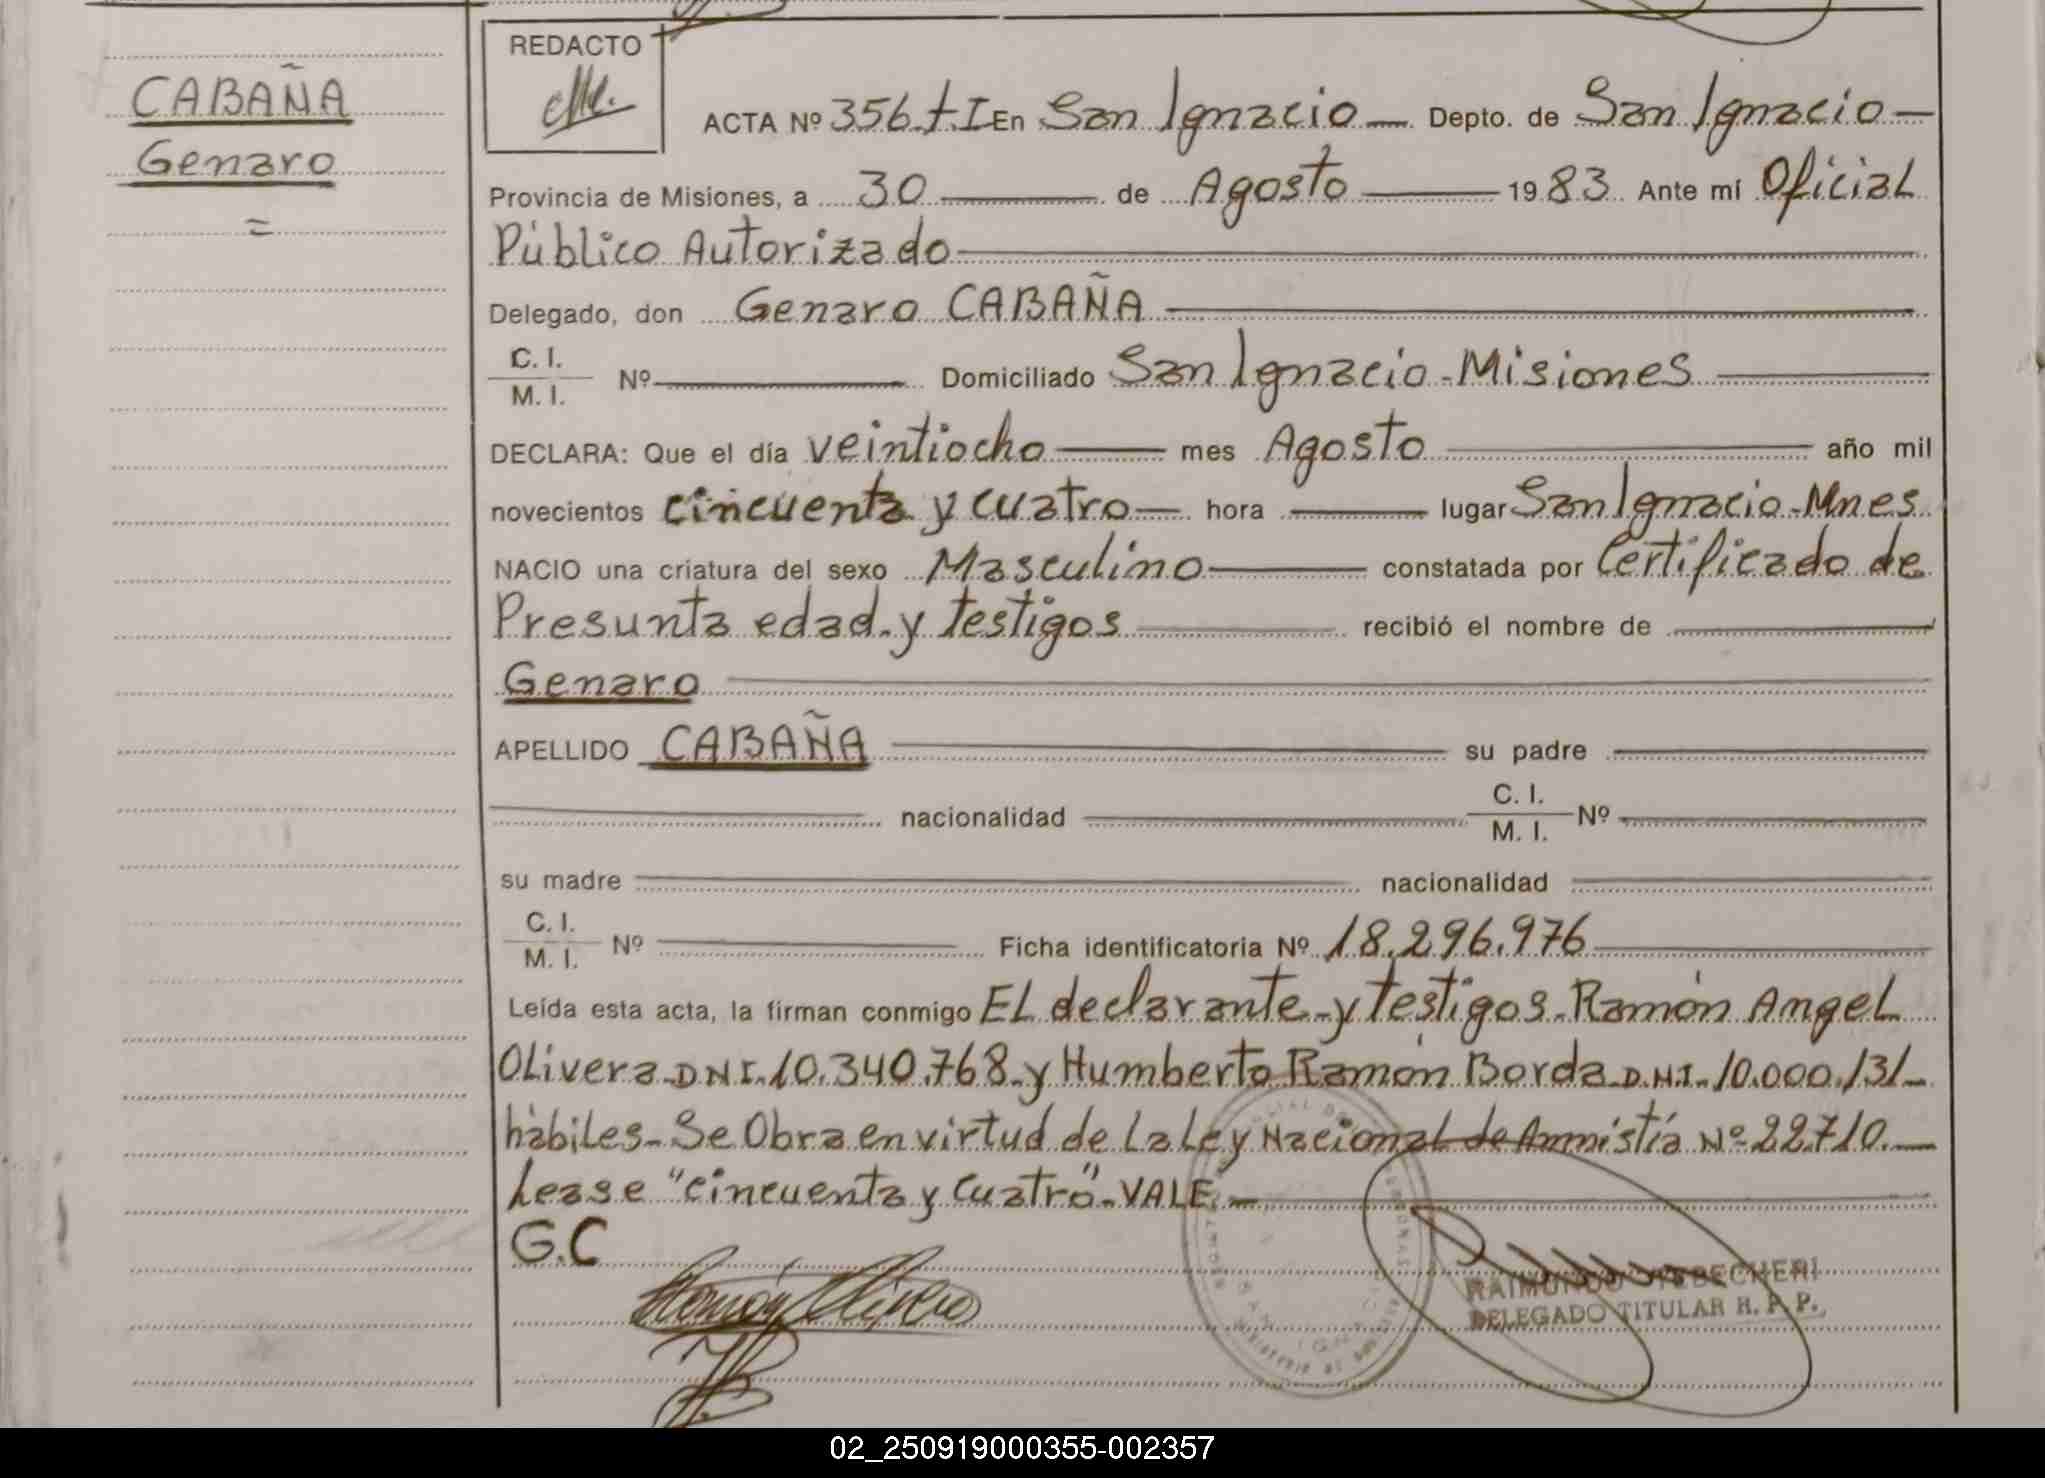 CABAÑA
Genaro
=
REDACTO
ACTA Nº 356. tI En San Ignacio — Depto. de San Ignacio —
Provincia de Misiones, a 30 — de Agosto — 1983 Ante mí Oficial
Público Autorizado
Delegado, don Genaro CABAÑA
C. I.
M. I. Nº — Domiciliado San Ignacio - Misiones
DECLARA: Que el día veintiocho — mes Agosto — año mil
novecientos cincuenta y cuatro — hora — lugar San Ignacio - Mnes
NACIO una criatura del sexo Masculino — constatada por Certificado de
Presunta edad. y testigos — recibió el nombre de
Genaro
APELLIDO CABAÑA — su padre
nacionalidad — C. I.
M. I. Nº
su madre — nacionalidad
C. I.
M. I. Nº — Ficha identificatoria Nº 18.296.976
Leída esta acta, la firman conmigo El declarante - y testigos - Ramón Angel
Olivera - DNI. 10.340.768 - y Humberto Ramón Borda - D.N.I. - 10.000.131 -
hábiles - Se Obra en virtud de la Ley Nacional de Amnistía Nº 22.710. —
Lease "cincuenta y cuatro" - VALE —
G.C
RAIMUNDO
DELEGADO TITULAR R. P. P.
02_250919000355-002357